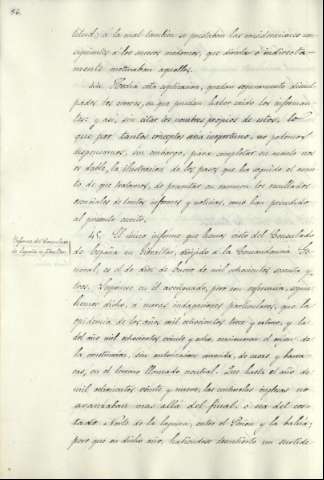 titud; a la cual tambien se prestaban las consideraciones con-
siguientes a los sucesos modernos, que directa o indirecta-
mente motivaban aquellos.
Hecha esta esplicacion, quedan seguramente discul-
pados los errores, en que puedan haber caido los informan-
tes y así, sin citar los nombres propios de estos, lo
que por tantos conceptos seria inoportuno, no podemos
dispensarnos, sin embargo, para completar en cuanto nos
es dable, la ilustracion de los pasos que ha seguido el asun-
to de que tratamos, de presentar en resumen los resultados
esenciales de tantos informes y noticias, como han precedido
al presente escrito.
Informe del Consulado
de España en Gibraltar
45. El único informe que hemos visto del Consulado
de España en Gibraltar, dirijido a la Comandancia Ge-
neral, es el de dos de Enero de mil ochocientos sesenta y
tres. Supone en él acertado, por su referencia, segun
hemos dicho, a meras indagaciones particulares, que la
epidemia de los años mil ochocientos trece y catorce, y la
del año mil ochocientos veinte y ocho, ocasionaron el origen de
la construccion, sin autorizacion conocida, de casas y barra-
cas, en el terreno llamado neutral. Que hasta el año de
mil ochocientos veinte y nueve, las centinelas inglesas no
avanzaban mas allá del final, o sea del cos-
tado Norte de la laguna, entre el Peñon y la bahia;
pero que en dicho año, habiendose